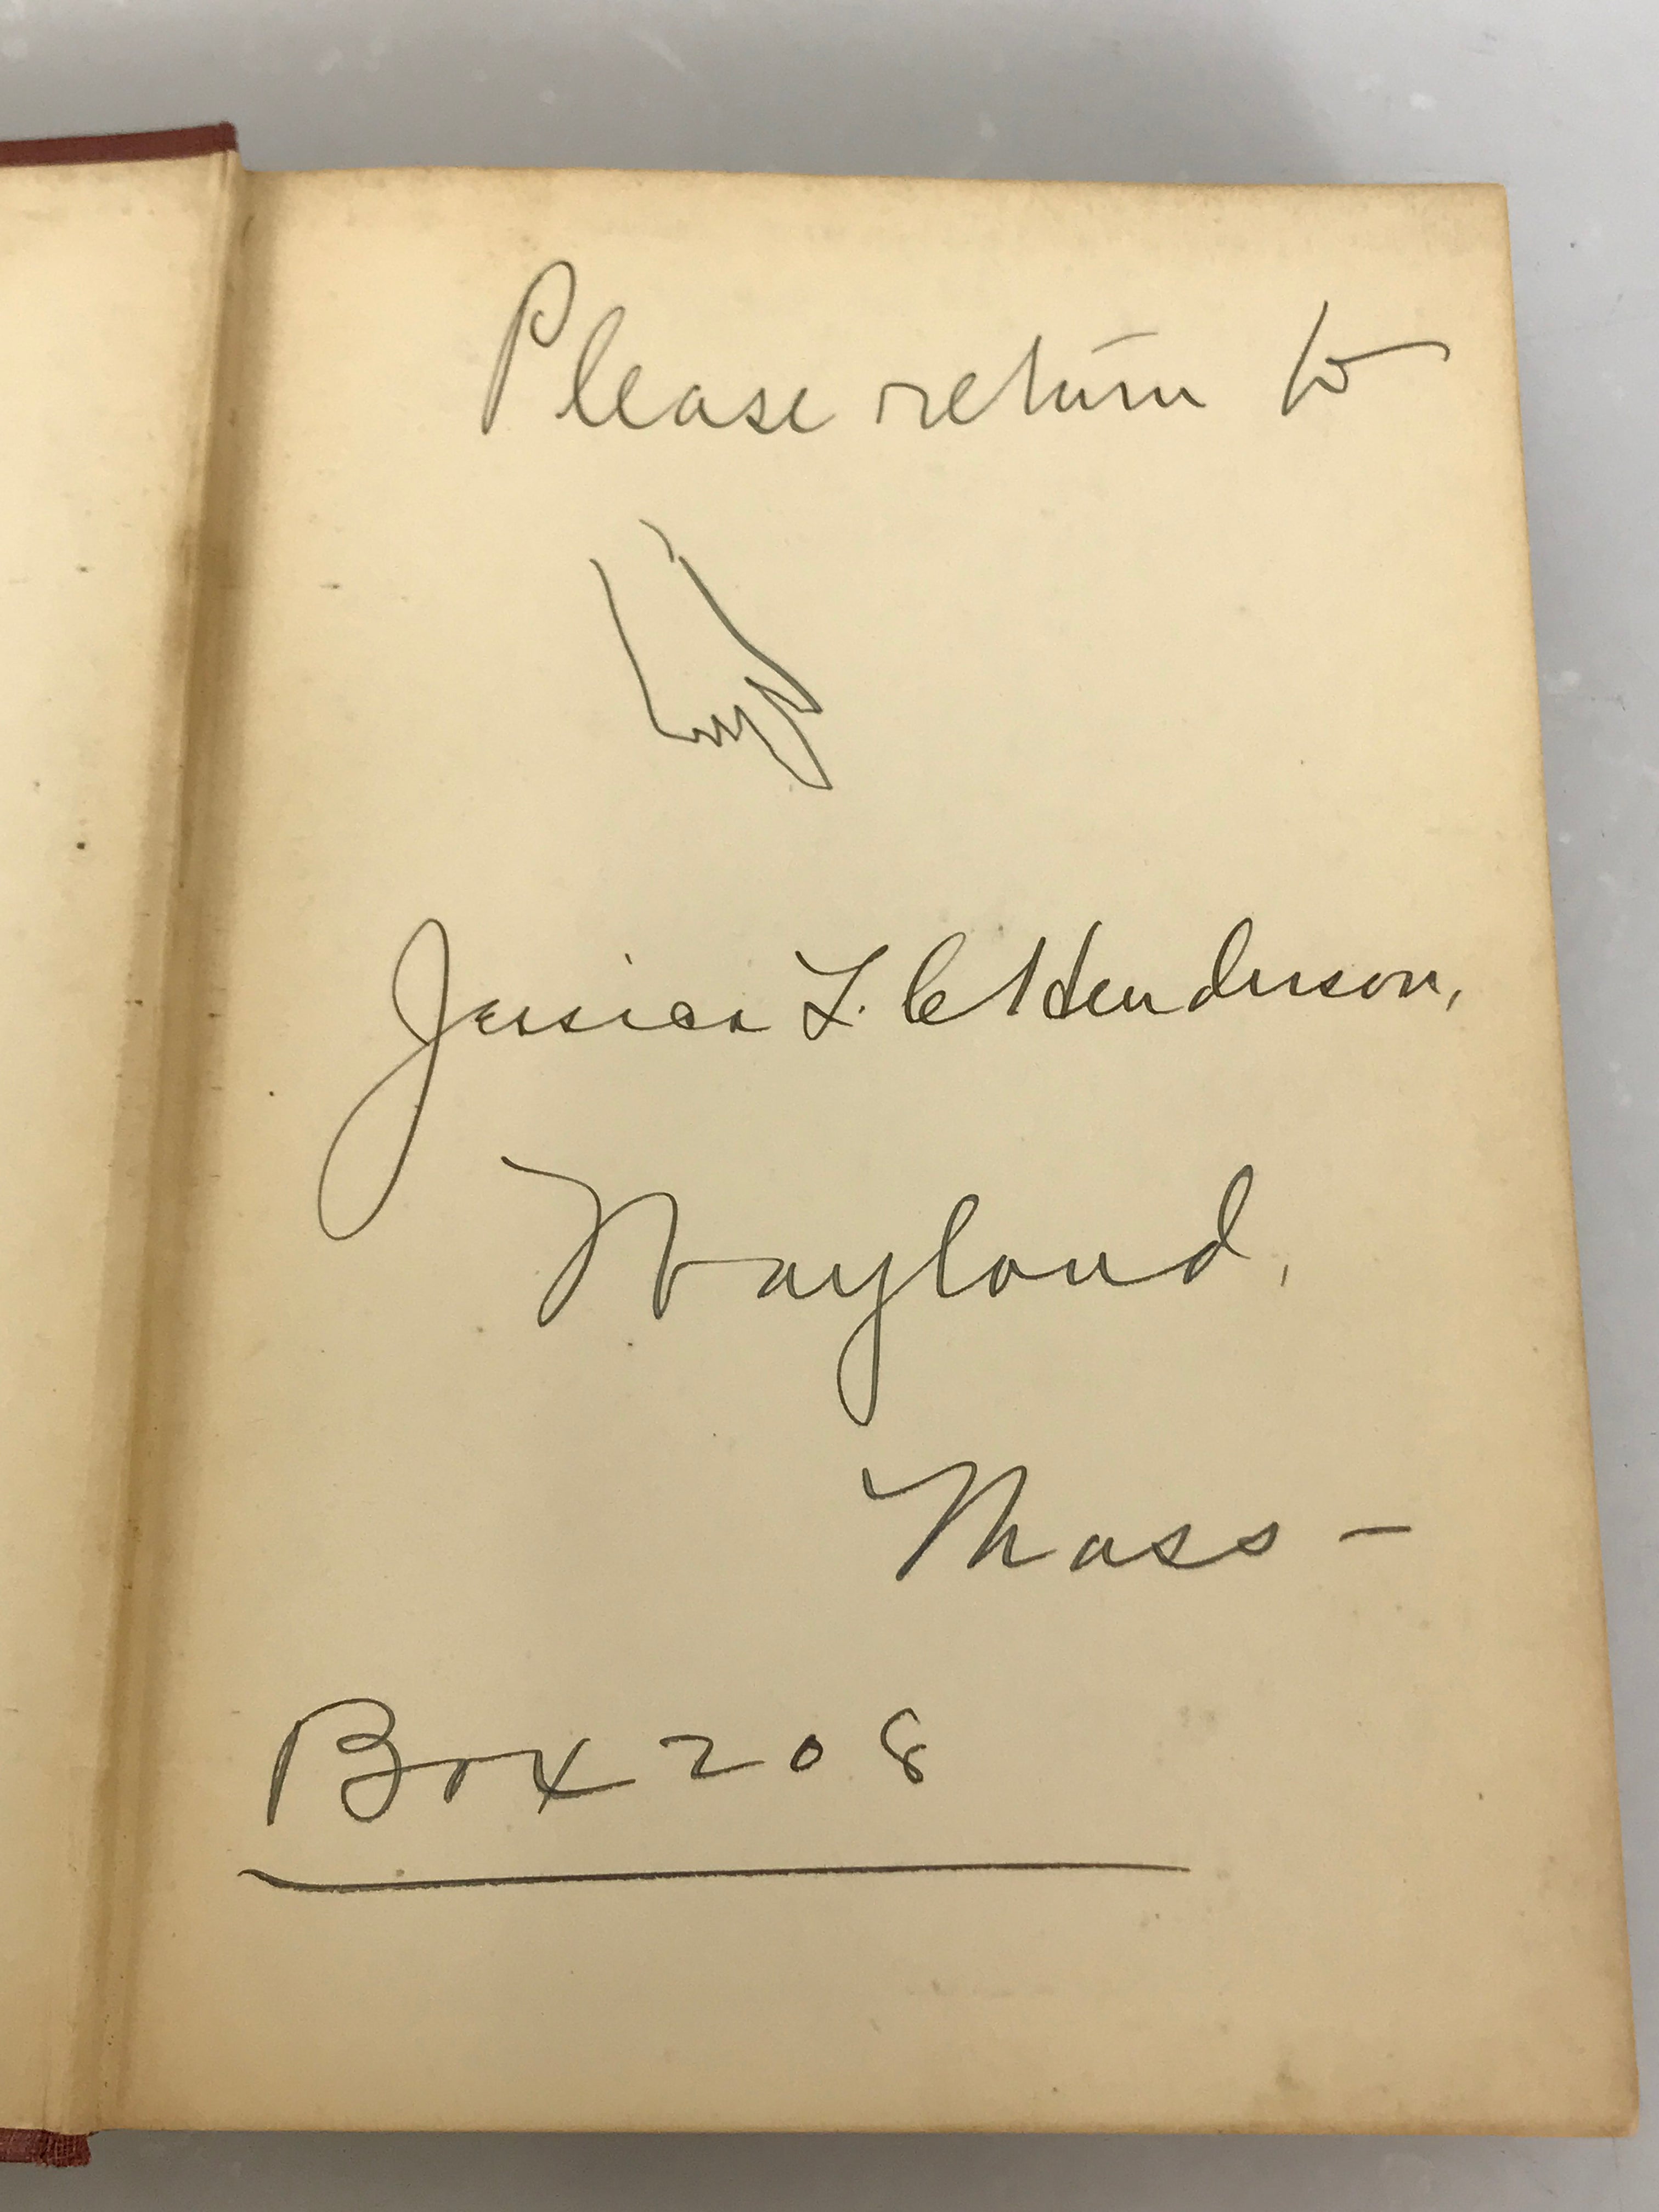 Please return to
Jessica L. C Henderson,
Wayland,
Mass –
Box 208